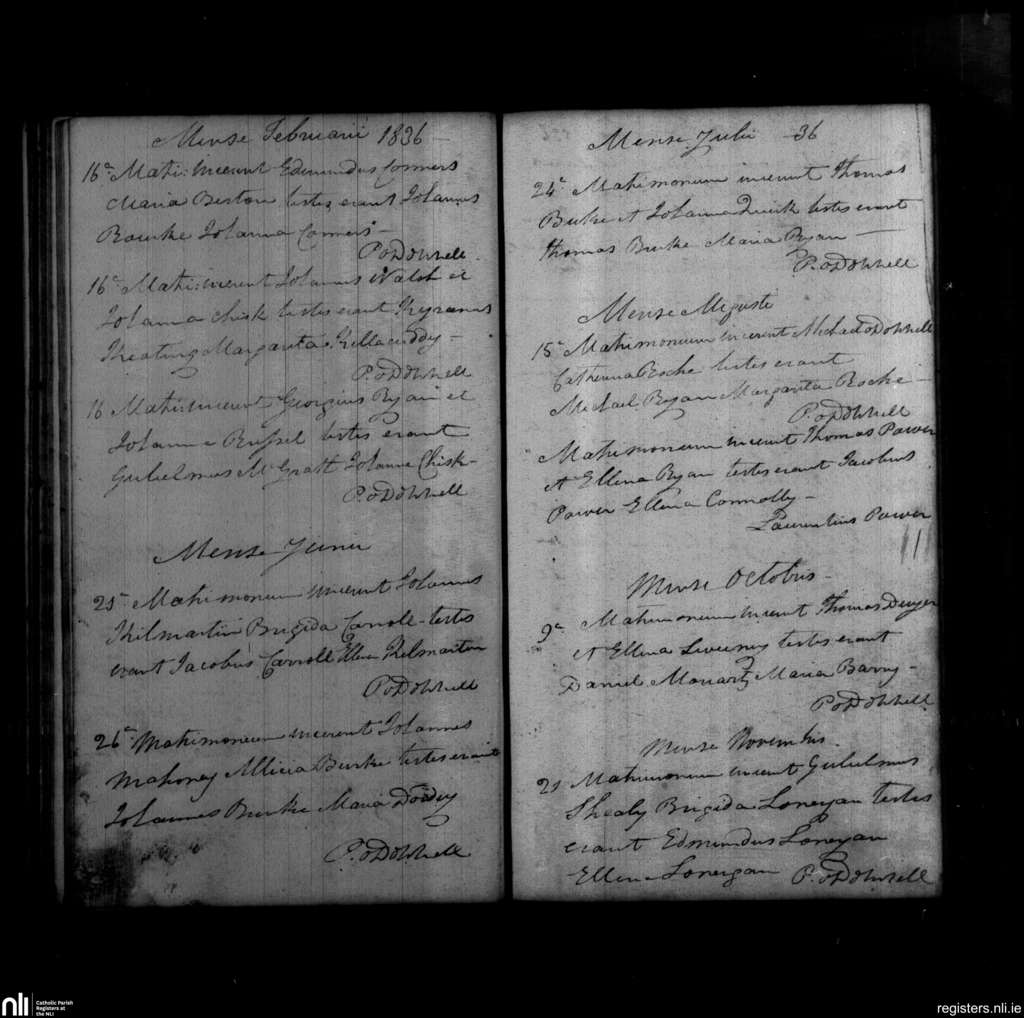 Mense Februarii 1836
16a Matri: inierunt Edmundus Comers
Maria Beston testes erant Johannes
Rourke Johanna Comers
P. oDonnell
16a Matri: inierunt Johannes Walsh et
Johanna Chisk testes erant Kyranus
Kheating Margarita Killacuddy
P. oDonnell
16 Matri: inierunt Georgius Ryan et
Johanna Russel testes erant
Gulielmus McGratt Johanna Chisk
P. oDonnell
Mense Junii
25a Matrimonium inierunt Johannes
Kilmartin Brigida Carroll testes
erant Jacobus Carroll Ellena Kilmartin
P. oDonnell
26a Matrimonium inierunt Johannes
Mahoney Allicia Burke testes erant
Johannes Burke Maria
P. oDonnell
Mense Julii 36
24a Matrimonium inierunt Thomas
Burke et Johanna Quirk testes erant
Thomas Burke Maria Ryan
P. oDonnell
Mense Auguste
15a Matrimonium inierunt Michael oDonnell
Catherina Roche testes erant
Michael Ryan Margarita Roche
P. oDonnell
Matrimonium inierunt Thomas Power
et Ellena Ryan testes erant Jacobus
Power Ellena Connolly
Laurentius Power
Mense Octobris
9a Matrimonium inierunt Thomas Dwyer
et Ellena Sweeney testes erant
Daniel Moriarty Maria Barry
P. oDonnell
Mense Novembris
25 Matrimonium inierunt Gulielmus
Shealy Brigida Lonergan testes
erant Edmundus Lonergan
Ellena Lonergan P. oDonnell
nli Catholic Parish
Registers at
the NLI
registers.nli.ie